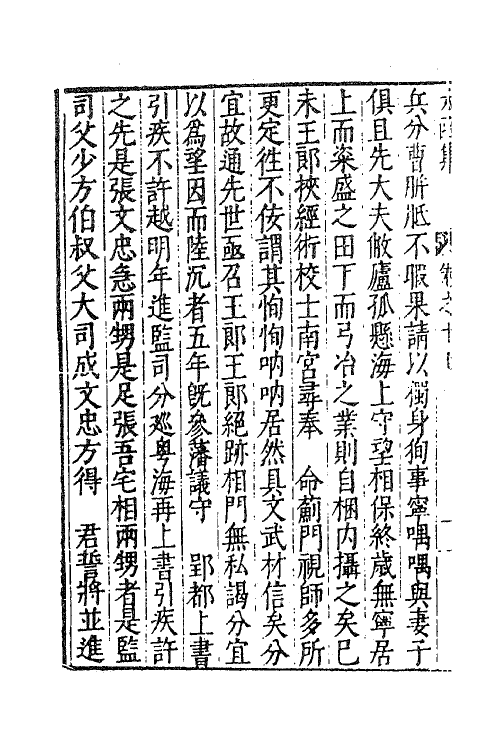 兵分曹胼胝不暇果請以獨身狥事寧喁喁與妻子
俱且先大夫敝廬孤懸海上守望相保終歲無寧居
上而粢盛之田丁而弓冶之業則自梱内攝之矣已
未王郎挾經術校士南宮尋奉　命薊門視師多所
更定徃不佞謂其恂恂吶吶居然具文武材信矣分
宜故通先世亟召王郎王郎絕跡相門無私謁分宜
以爲望因而陸沉者五年旣參藩議守　郢都上書
引疾不許越明年進監司分廵粤海再上書引疾許
之先是張文忠急兩甥是足張吾宅相兩甥者是監
司父少方伯叔父大司成文忠方得　君誓將並進